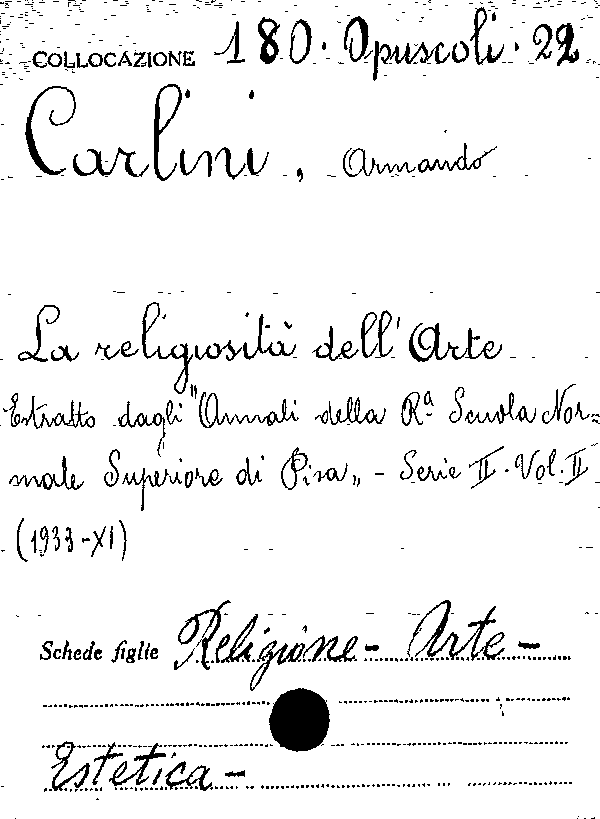 COLLOCAZIONE 180. Opuscoli. 22
Carlini, Armando
La religiosità dell'Arte
Estratto dagli "Annali della Rª Scuola Nor=
male Superiore di Pisa„ - Serie II. Vol. II
(1933-XI)
Schede figlie Religione - Arte -
Estetica -